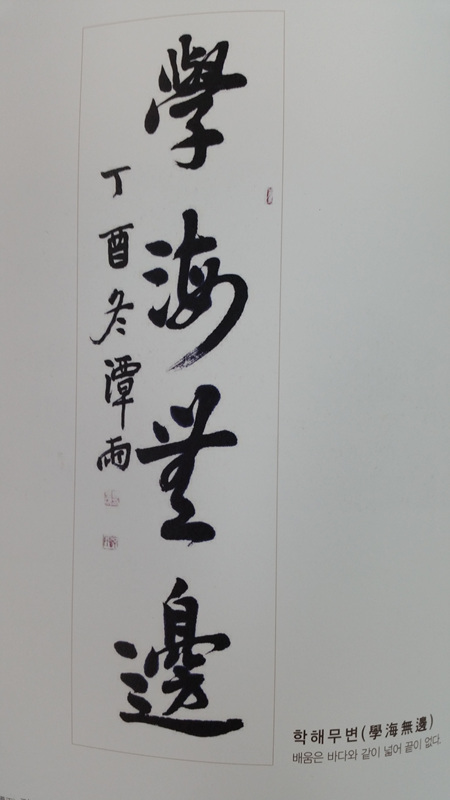 學海無邊
丁酉冬潭雨
학해무변(學海無邊)
배움은 바다와 같이 넓어 끝이 없다.